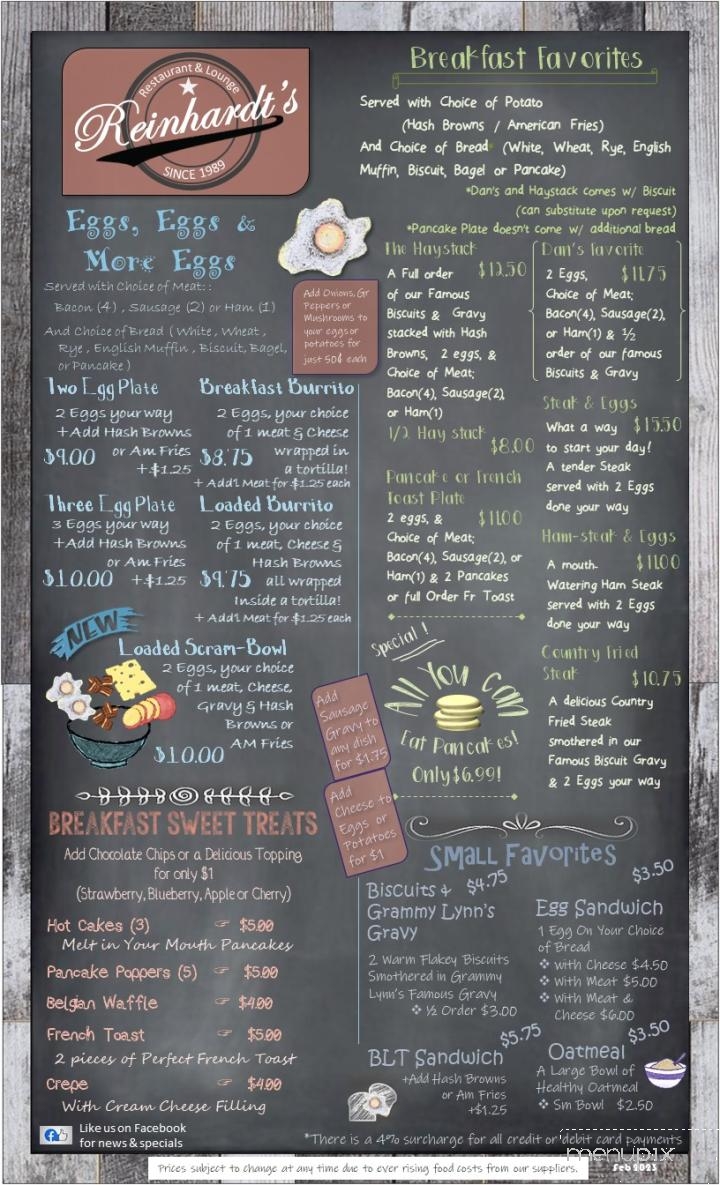 Restaurant & Lounge
Reinhardt's
SINCE 1989
Eggs, Eggs &
More Eggs
Served with Choice of Meat: :
Bacon (4) , Sausage (2) or Ham (1)
And Choice of Bread ( White , Wheat ,
Rye , English Muffin , Biscuit, Bagel,
or Pancake )
Add Onions, Gr
Peppers or
Mushrooms to
your eggs or
potatoes for
just 50¢ each
Two Egg Plate
2 Eggs your way
+Add Hash Browns
or Am Fries
$9.00
+$1.25
Breakfast Burrito
2 Eggs, your choice
of 1 meat & Cheese
$8.75 wrapped in
a tortilla!
+ Add'l Meat for $1.25 each
Three Egg Plate
3 Eggs your way
+Add Hash Browns
or Am Fries
$10.00 +$1.25
Loaded Burrito
2 Eggs, your choice
of 1 meat, Cheese &
Hash Browns
$9.75 all wrapped
Inside a tortilla!
+ Add'l Meat for $1.25 each
NEW
Loaded Scram-Bowl
2 Eggs, your choice
of 1 meat, Cheese,
Gravy & Hash
Browns or
AM Fries
$10.00
BREAKFAST SWEET TREATS
Add Chocolate Chips or a Delicious Topping
for only $1
(Strawberry, Blueberry, Apple or Cherry)
Hot Cakes (3) ☞ $5.00
Melt in Your Mouth Pancakes
Pancake Poppers (5) ☞ $5.00
Belgian Waffle ☞ $4.00
French Toast ☞ $5.00
2 pieces of Perfect French Toast
Crepe ☞ $4.00
With Cream Cheese Filling
Like us on Facebook
for news & specials
Breakfast Favorites
Served with Choice of Potato
(Hash Browns / American Fries)
And Choice of Bread* (White, Wheat, Rye, English
Muffin, Biscuit, Bagel or Pancake)
*Dan's and Haystack comes w/ Biscuit
(can substitute upon request)
*Pancake Plate doesn't come w/ additional bread
The Haystack
A Full order $12.50
of our Famous
Biscuits & Gravy
stacked with Hash
Browns, 2 eggs, &
Choice of Meat;
Bacon(4), Sausage(2),
or Ham(1)
1/2 Hay stack
$8.00
Pancake or French
Toast Plate
2 eggs, & $11.00
Choice of Meat;
Bacon(4), Sausage(2), or
Ham(1) & 2 Pancakes
or full Order Fr Toast
Special !
All You Can
Eat Pancakes!
Only $6.99!
Add
Sausage
Gravy to
any dish
for $1.75
Add
Cheese to
Eggs or
Potatoes
for $1
Dan's Favorite
2 Eggs, $11.75
Choice of Meat;
Bacon(4), Sausage(2),
or Ham(1) & ½
order of our famous
Biscuits & Gravy
Steak & Eggs
What a way $15.50
to start your day!
A tender Steak
served with 2 Eggs
done your way
Ham-steak & Eggs
A mouth- $11.00
Watering Ham Steak
served with 2 Eggs
done your way
Country Fried
Steak $10.75
A delicious Country
Fried Steak
smothered in our
Famous Biscuit Gravy
& 2 Eggs your way
Small Favorites
Biscuits & $4.75
Grammy Lynn's
Gravy
2 Warm Flakey Biscuits
Smothered in Grammy
Lynn's Famous Gravy
❖ ½ Order $3.00
$3.50
Egg Sandwich
1 Egg On Your Choice
of Bread
❖ with Cheese $4.50
❖ with Meat $5.00
❖ with Meat &
Cheese $6.00
$5.75
BLT Sandwich
+Add Hash Browns
or Am Fries
+$1.25
$3.50
Oatmeal
A Large Bowl of
Healthy Oatmeal
❖ Sm Bowl $2.50
*There is a 4% surcharge for all credit or debit card payments
menupix
Prices subject to change at any time due to ever rising food costs from our suppliers.
Feb 2023